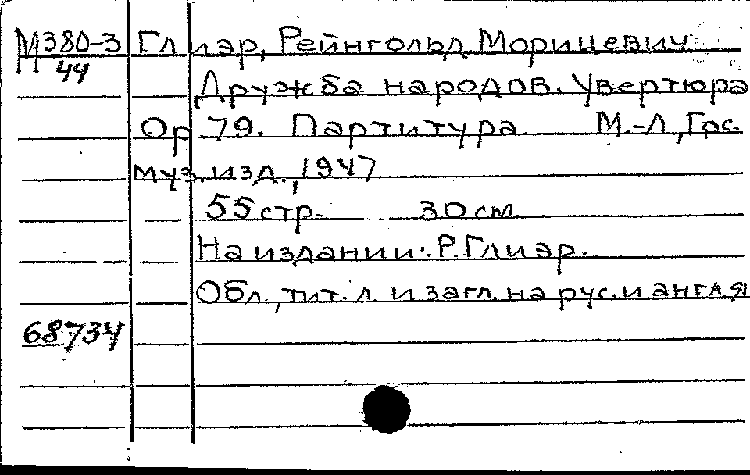 М380-3 Глиэр, Рейнгольд Морицевич
44
Дружба народов. Увертюра
Ор 79. Партитура М.-Л, Гос.
муз. изд., 1947
55 стр. 30 см
На издании: Р. Глиэр.
Обл., тит. л. и загл. на рус. и англ. яз
68734